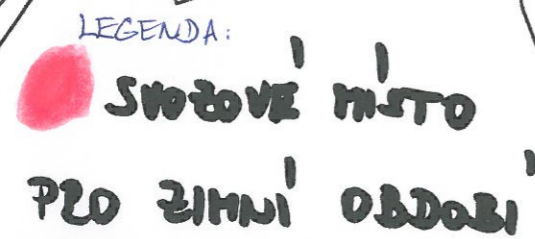 LEGENDA:
SVOZOVÉ MÍSTO
PRO ZIMNÍ OBDOBÍ